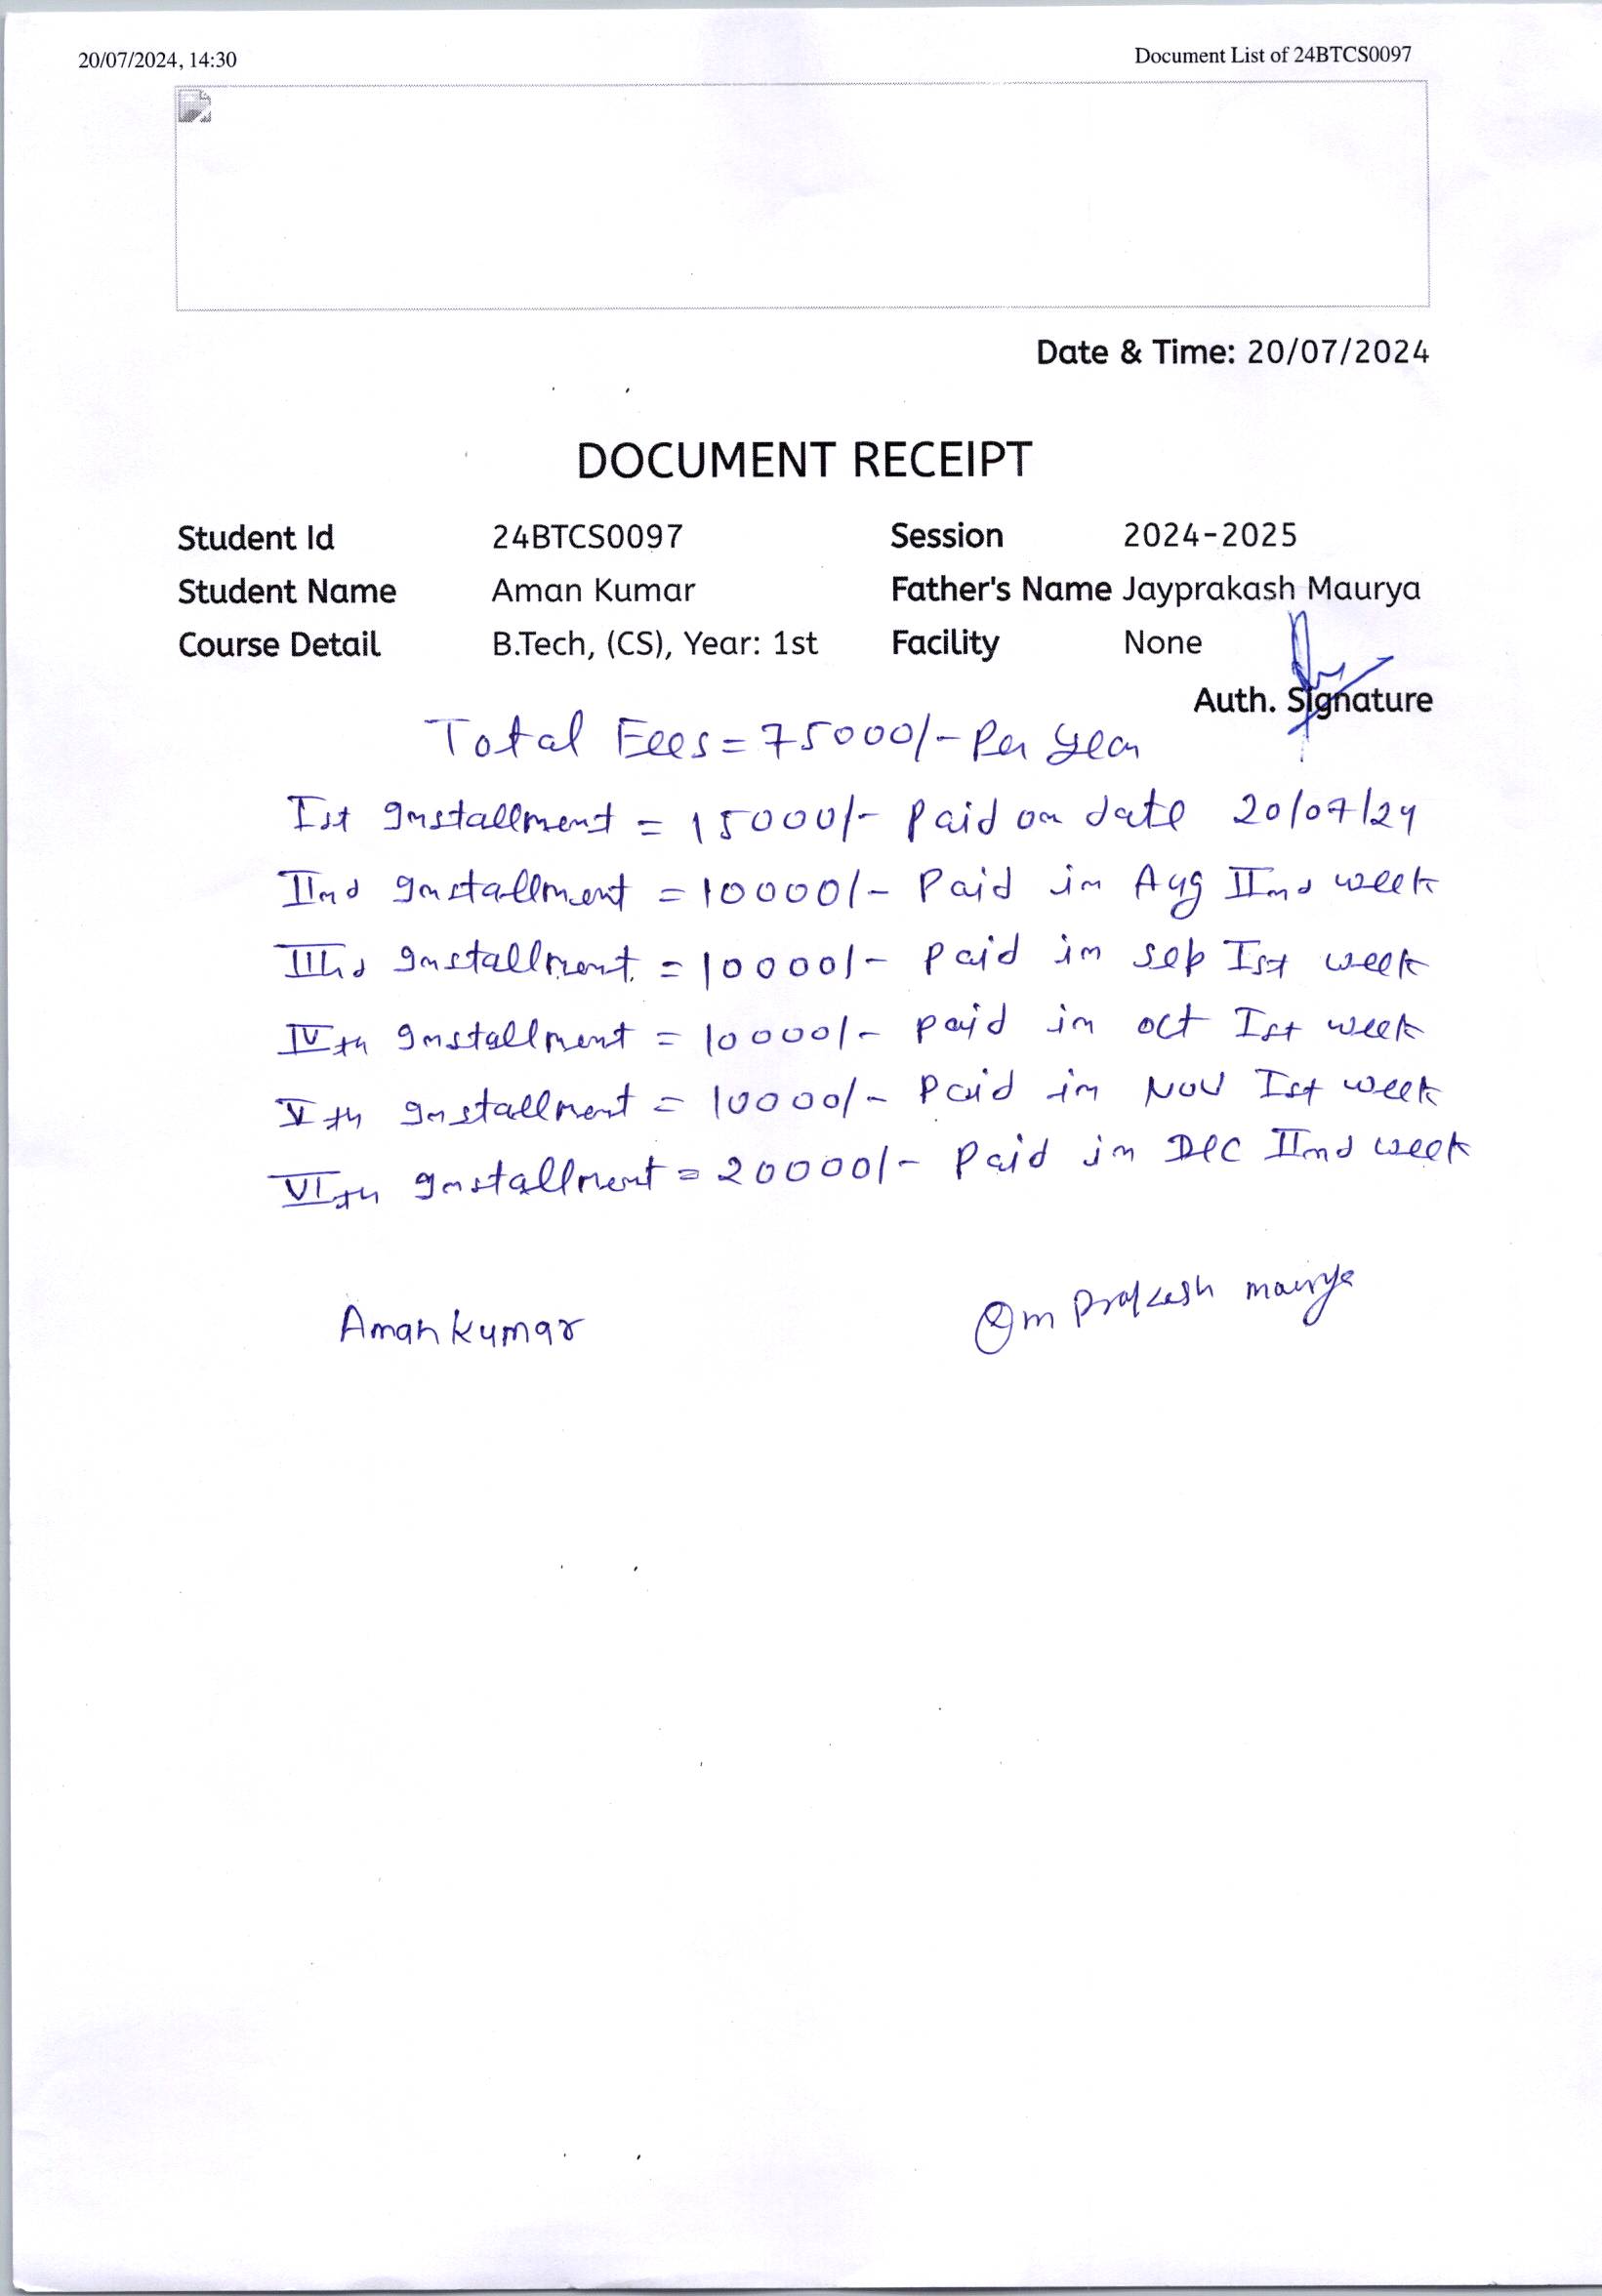 20/07/2024, 14:30 Document List of 24BTCS0097
Date & Time: 20/07/2024
DOCUMENT RECEIPT
Student Id 24BTCS0097 Session 2024-2025
Student Name Aman Kumar Father's Name Jayprakash Maurya
Course Detail B.Tech, (CS), Year: 1st Facility None
Auth. Signature
Total Fees = 75000/- Per year
Ist Installment = 15000/- Paid on date 20/07/24
IInd Installment = 10000/- Paid in Aug IInd week
IIIrd Installment = 10000/- Paid in sep Ist week
IVth Installment = 10000/- paid in oct Ist week
Vth Installment = 10000/- Paid in Nov Ist week
VIth Installment = 20000/- Paid in Dec IInd week
Aman kumar Om Prakash maurya